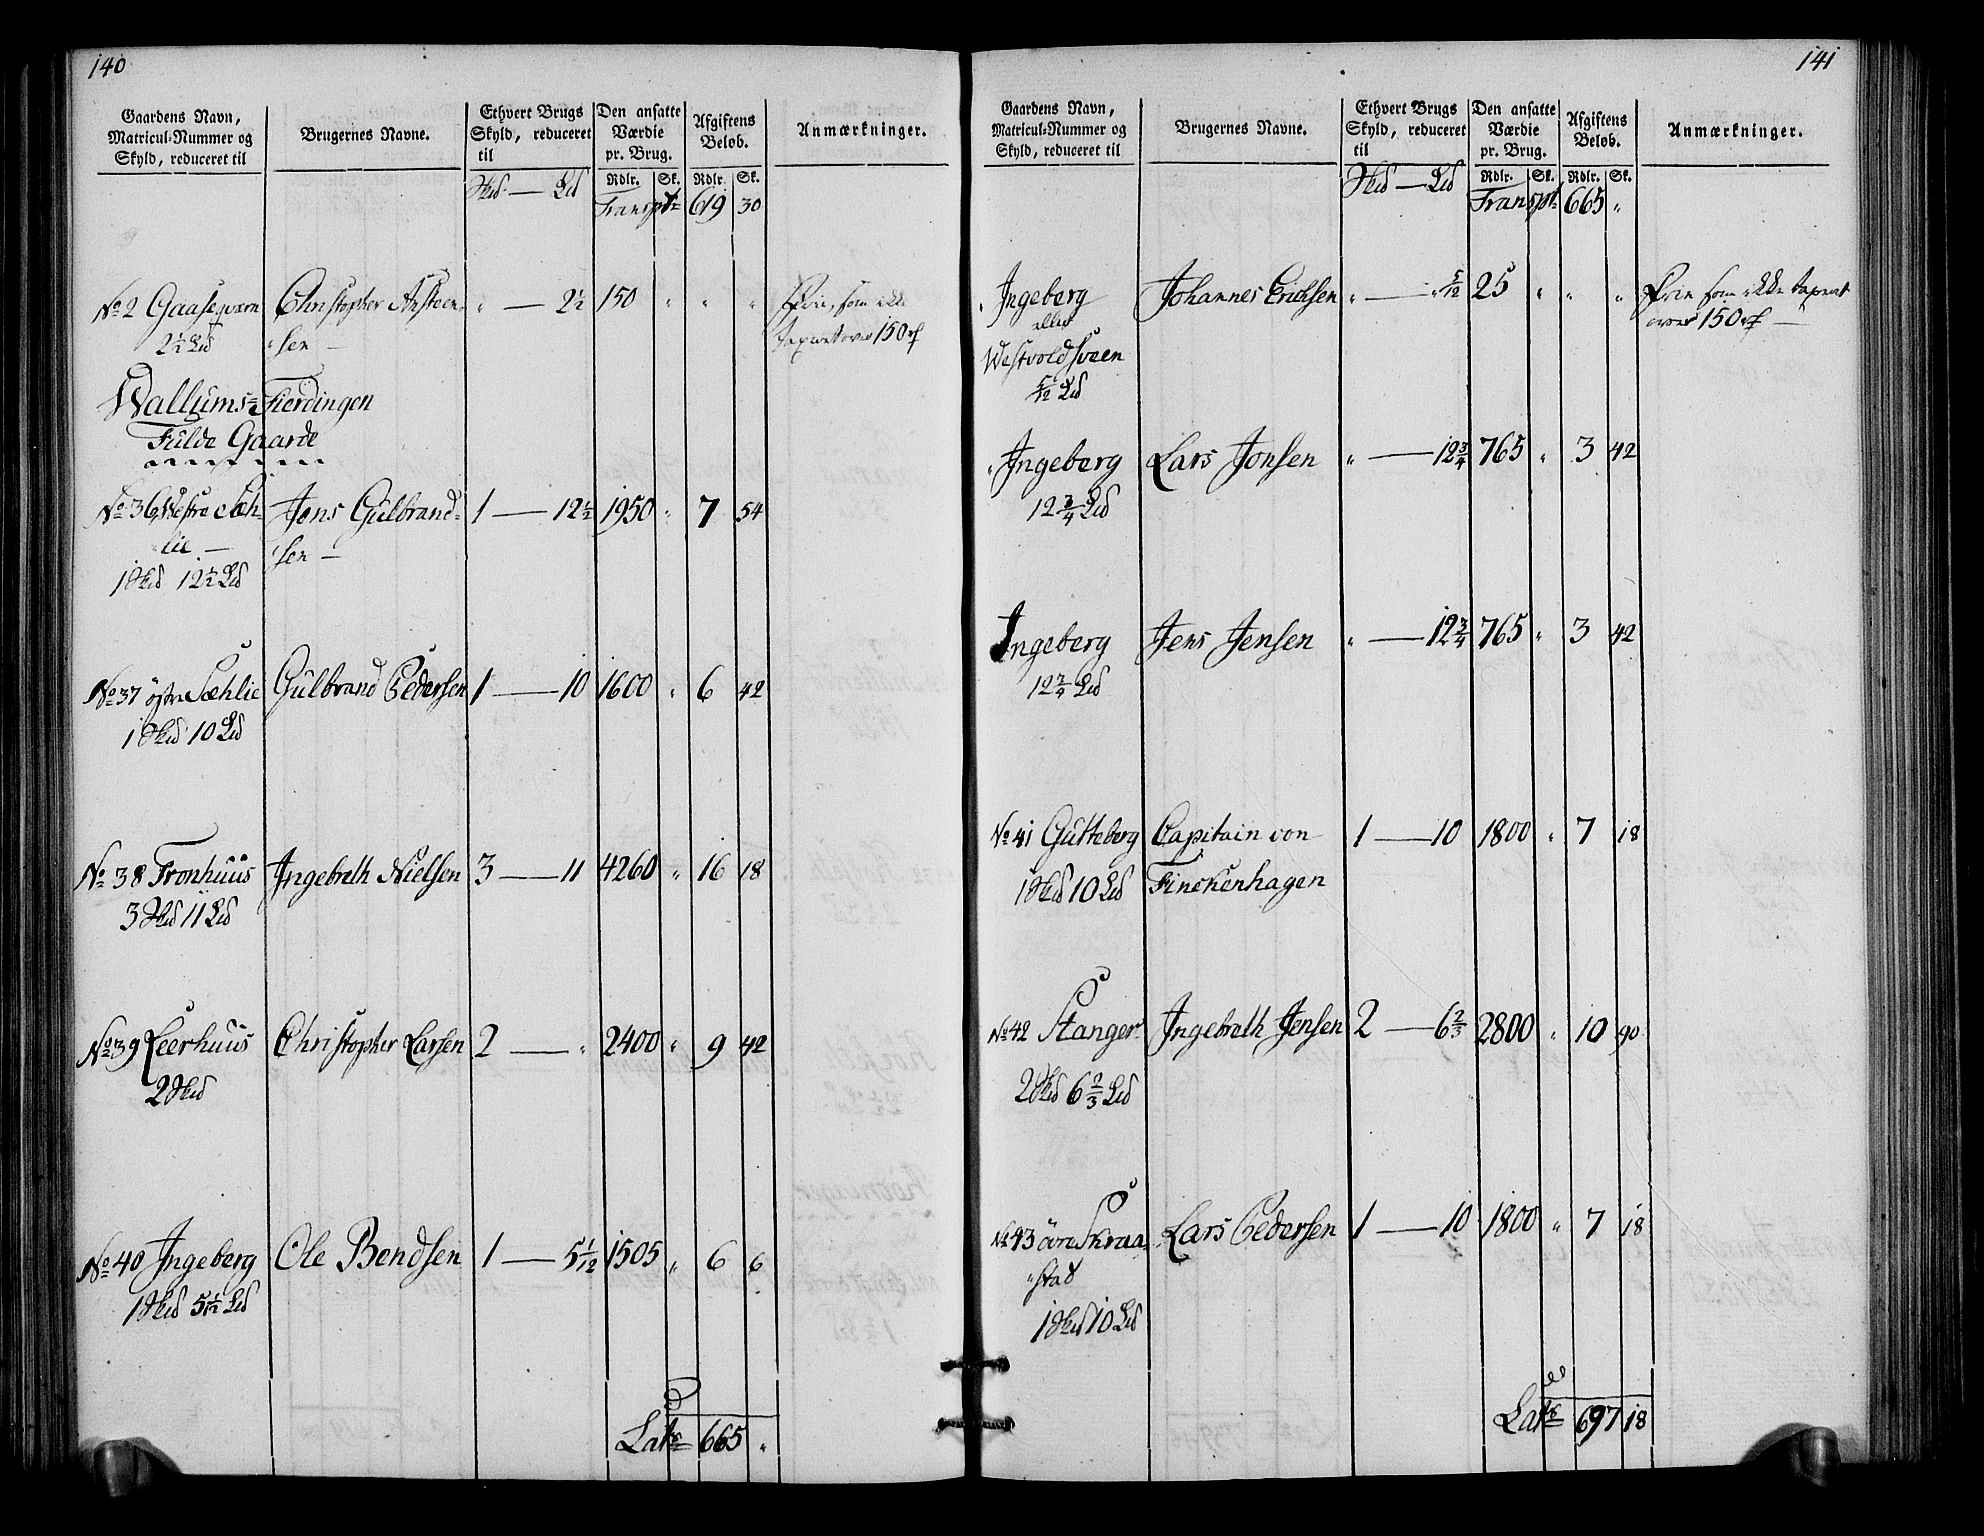 140
Gaardens Navn, Matricul-Nummer og Skyld, reduceret til | Brugernes Navne. | Ethvert Brugs Skyld, reduceret til | Den ansatte Værdie pr. Brug. | Afgiftens Beløb. | Anmærkninger.
Rdlr. | Sk. | Rdlr. | Sk.
Hud — Ld | Transpt | 619 | 30
No 2 Gaaseqværn | Christopher Ansteen- | " — 2½ | 150 | " | " | " | Frie, som ikke
2½ Ld | sen — | taxeret over 150 rf
Wallums-Fierdingen
Fulde Gaarde
No 36, Westre Sæh- | Jens Gulbrand- | 1 — 12½ | 1950 | " | 7 | 54
lie — | sen —
1 Hud 12½ Ld
No 37 östre Sæhlie | Gulbrand Pedersen | 1 — 10 | 1600 | " | 6 | 42
1 Hud 10 Ld
No 38 Tronhuus | Ingebreth Nielsen | 3 — 11 | 4260 | " | 16 | 18
3 Hud 11 Ld
No 39 Leerhuus | Christopher Larsen | 2 — " | 2400 | " | 9 | 42
2 Hud
No 40 Ingeberg | Ole Bendsen | 1 — 5 1/12 | 1505 | " | 6 | 6
1 Hud 5 1/12 Ld
Lats | 665 | "
141
Gaardens Navn, Matricul-Nummer og Skyld, reduceret til | Brugernes Navne. | Ethvert Brugs Skyld, reduceret til | Den ansatte Værdie pr. Brug. | Afgiftens Beløb. | Anmærkninger.
Rdlr. | Sk. | Rdlr. | Sk.
Hud — Ld | Transpt | 665 | "
Ingeberg | Johannes Erichsen | " — " 5/12 | 25 | " | " | " | Frie som ikke taxeret
eller | over 150 rf —
Westvoldsveen
5/12 Ld
Ingeberg | Lars Jonsen | " — 12¾ | 765 | " | 3 | 42
12¾ Ld
Ingeberg | Jens Jensen | " — 12¾ | 765 | " | 3 | 42
12¾ Ld
No 41 Gutteberg | Capitain von | 1 — 10 | 1800 | " | 7 | 18
1 Hud 10 Ld | Finckenhagen
No 42 Stanger | Ingebreth Jensen | 2 — 6⅔ | 2800 | " | 10 | 90
2 Hud 6⅔ Ld
No 43 övre Skraa- | Lars Pedersen | 1 — 10 | 1800 | " | 7 | 18
stad
1 Hud 10 Ld
Lats | 697 | 18